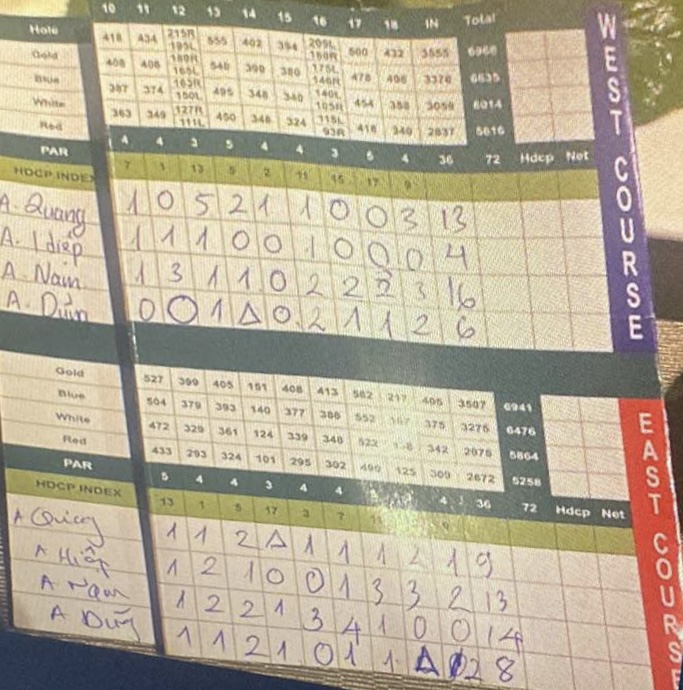 Hole 10 11 12 13 14 15 16 17 18 IN Total
Gold 418 434 215R 195L 555 402 394 205L 500 432 3555 6968
Blue 408 408 189R 165L 540 390 380 175L 146R 478 408 3376 6635
White 387 374 163R 150L 495 348 340 140L 105R 454 358 3059 6014
Red 363 349 127R 111L 450 348 324 115L 93R 418 340 2837 5616
PAR 4 4 3 5 4 4 3 5 4 36 72 Hdcp Net
HDCP INDEX 7 1 13 5 2 11 15 17 9
A. Quang 1 0 5 2 1 1 0 0 3 13
A. Hiệp 1 1 1 0 0 1 0 0 0 4
A. Nam 1 3 1 1 0 2 2 2 3 16
A. Dũng 0 0 1 Δ 0 2 1 1 2 6
WEST COURSE
Gold 527 399 405 151 408 413 582 217 405 3507 6941
Blue 504 379 393 140 377 388 552 167 375 3275 6476
White 472 329 361 124 339 348 522 342 2975 5864
Red 433 293 324 101 295 302 490 125 309 2672 5258
PAR 5 4 4 3 4 4 4 36 72 Hdcp Net
HDCP INDEX 13 1 5 17 3 7
A Quang 1 1 2 Δ 1 1 1 2 1 9
A Hiệp 1 2 1 0 0 1 3 3 2 13
A Nam 1 2 2 1 3 4 1 0 0 14
A Dũng 1 1 2 1 0 1 1 Δ 2 8
EAST COURSE